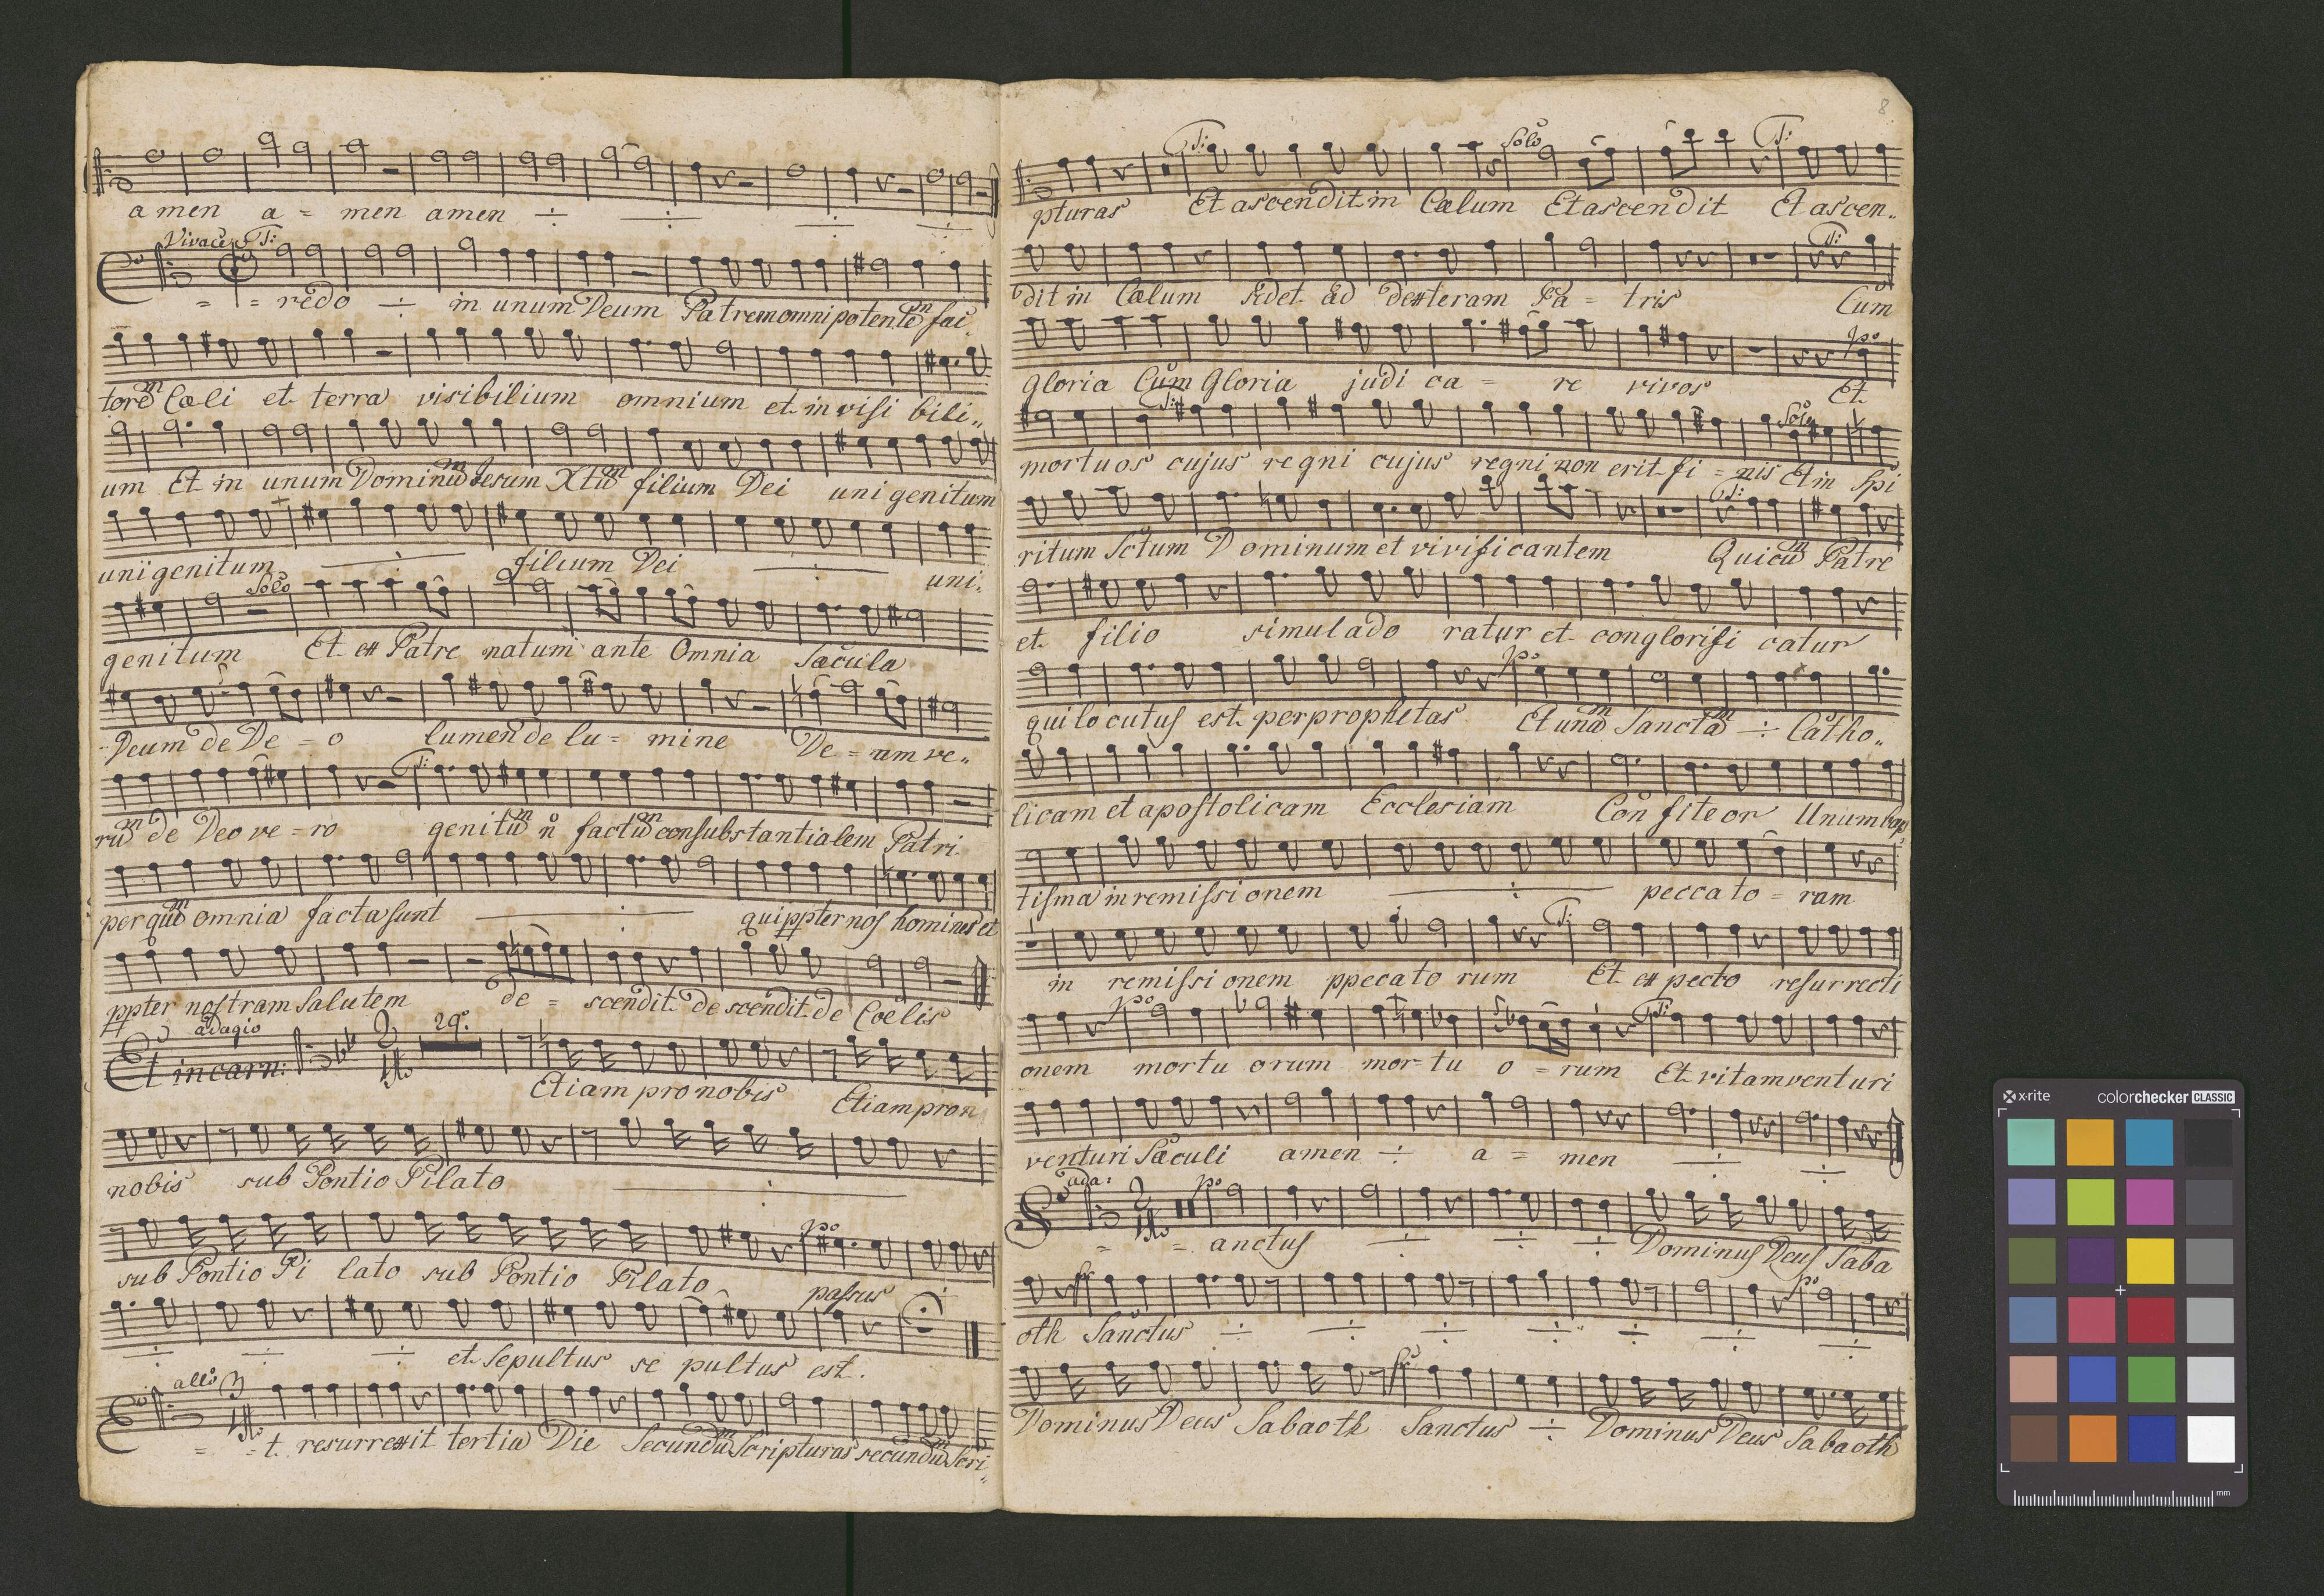 a men a = men amen ÷ ÷ ÷ ÷
Vivace T:
C = = redo ÷ in unum Deum Patrem omnipotentem̄ fac
torem̄ Cœli et terra visibilium omnium et in visi bili„
um Et in unum Dominūm Jesum Xtūm filium Dei uni genitum
unigenitum ÷ filium Dei ÷ uni„
Solo
genitum Et ex Patre natum ante Omnia Sæcula
Deum de De = o lumen de lu = mine De = um ve„
T:
rūm de Deo ve = ro genitūm n̊ factūm consubstantialem Patri
per quēm omnia facta sunt ÷ quippter nos homines et
ppter nostram Salutem de = scendit de scendit de Coelis
adagio 29.
Et incarn: Etiam pro nobis Etiam pro n
nobis sub Pontio Pilato ÷
po
sub Pontio Pi lato sub Pontio Pilato passus
÷ ÷ ÷ et Sepultus se pultus est.
allo 3
E = = t resurrexit tertia Die Secundūm Scripturas secundūm Scri„
8
T: Solo T:
pturas Et ascendit in Cælum Et ascendit Et ascen„
T:
dit in Cælum sedet ad dexteram Pa = tris Cum
po
gloria Cum Gloria judi ca = re vivos Et
T: Solo
mortuos cujus regni cujus regni non erit fi = nis Et in Spi
T:
ritum Sctum Dominum et vivificantem Qui cūm Patre
et filio simul ado ratur et conglorifi catur
po
qui locutus est per prophetas Et unām Sanctām ÷ Catho„
licam et apostolicam Ecclesiam Con fite or Unum bap„
tisma in remissi onem ÷ peccato = ram
T:
in remissi onem ppecato rum Et ex pecto resurrecti
po T:
onem mortu orum mor- tu o = rum Et vitam venturi
venturi Sæculi amen ÷ a = men ÷ ÷
ada: po
S = = anctus ÷ ÷ ÷ Dominus Deus Saba
fr po
oth Sanctus ÷ ÷ ÷ ÷ ÷ ÷ ÷
fr
Dominus Deus Sabaoth Sanctus ÷ Dominus Deus Sabaoth
x·rite colorchecker CLASSIC
mm